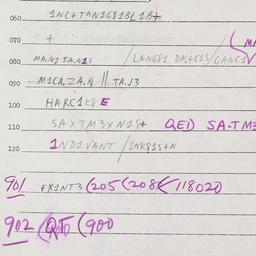 060 1NC+TAN1G81BL1B+
070 +
080 MA.N1 TA.N1S /LANG81 DA.+C1S/GANC1V
090 M1CA.ZA.N || TA.J3
100 HARC1K8 E
110 SAXTM3XN1S+ QED SA.TM3
120 1ND1VANT /1NK81S+N
901 FX1NT3 (205 (208 118020
902 (900